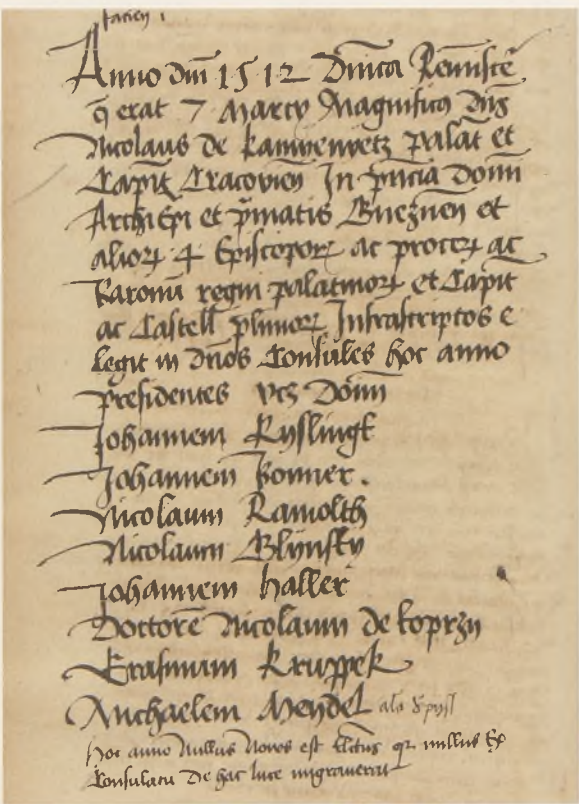 facien
Anno dm̄ 1512 Dm̄ica Reminiscē
q̄ erat 7 Marcy Magnificꝰ Dn̄s
Nicolaus de kamyenyetz palat̄ et
Capit̄ Cracovien̄ In p̄ncia Domi
Archiep̄i et p̄matis Gneznen̄ et
alioꝝ 4 Episcopoꝝ ac proceꝝ ac
Baronū regni palatinoꝝ et Capit̄
ac Castell̄ plimoꝝ Infrascriptos e
legit in Dn̄os Consules hoc anno
presidentes vcz Dom̄
Johannem
Johannem Bonner.
Nicolaum Ramolth
Nicolaum Glynsky
Johannem haller
Doctorē Nicolaum de koprzy
Erasmum Kruppek
Michaelem Meydel als Spysl
hoc anno Nullus Novus est Electus qr nullus Ex
Consulatu De hac luce migraverat